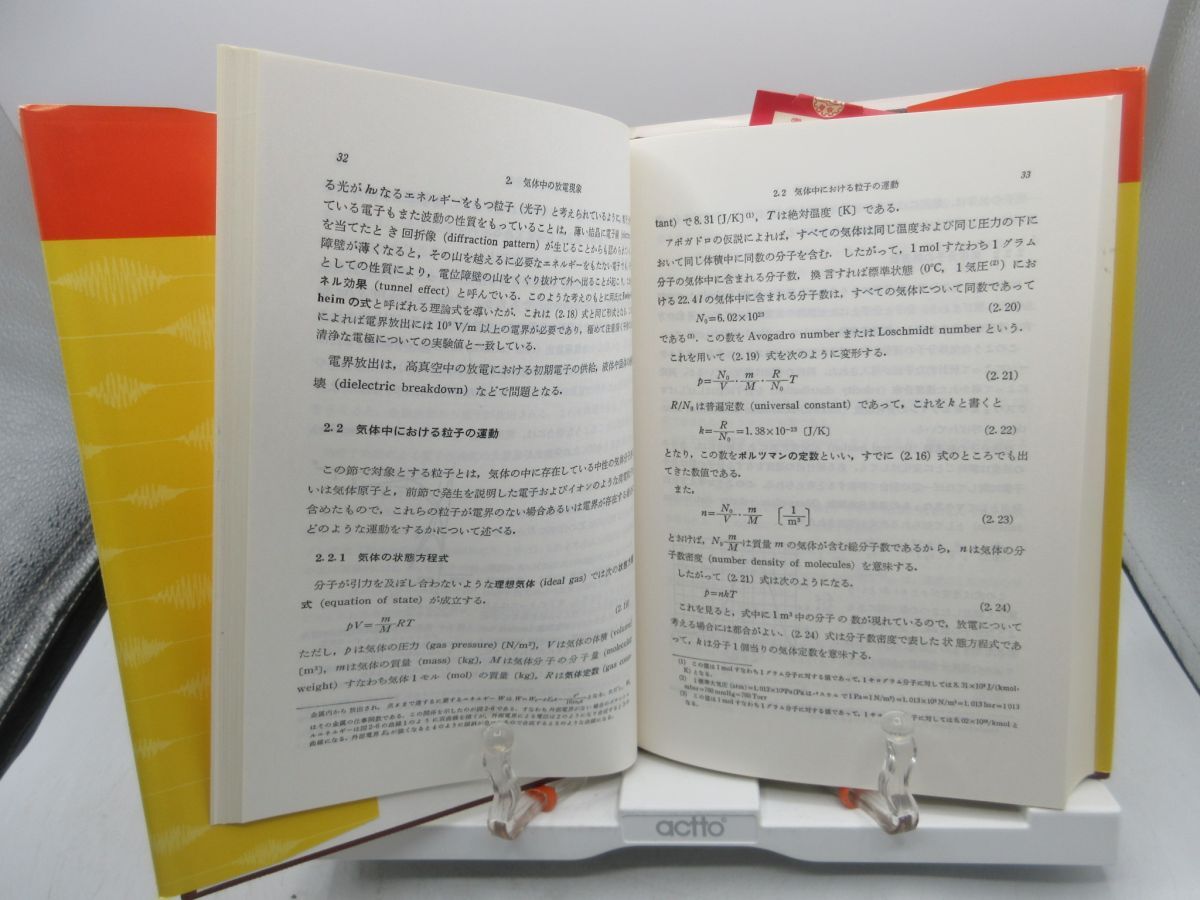 32
2. 気体中の放電現象
る光がhνなるエネルギーをもつ粒子(光子)と考えられているように,
ている電子もまた波動の性質をもっていることは,薄い結晶に電子線
を当てたとき回折像(diffraction pattern)が生じることからも認められ
障壁が薄くなると,その山を越えるに必要なエネルギーをもたない電子でも,
としての性質により,電位障壁の山をくぐり抜けて外へ出ることが起こり,
ネル効果(tunnel effect)と呼んでいる.このような考えのもとに
heimの式と呼ばれる理論式を導いたが,これは(2.18)式と同じ形式となる.
によれば電界放出には10⁹ V/m以上の電界が必要であり,極めて注意深く
清浄な電極についての実験値と一致している.
電界放出は,高真空中の放電における初期電子の供給,液体や固体の
壊(dielectric breakdown)などで問題となる.
2.2 気体中における粒子の運動
この節で対象とする粒子とは,気体の中に存在している中性の気体分子
いは気体原子と,前節で発生を説明した電子およびイオンのような荷電粒子
含めたもので,これらの粒子が電界のない場合あるいは電界が存在する場合
どのような運動をするかについて述べる.
2.2.1 気体の状態方程式
分子が引力を及ぼし合わないような理想気体(ideal gas)では次の状態方程
式(equation of state)が成立する.
pV=m/M RT
ただし,pは気体の圧力(gas pressure)[N/m²],Vは気体の体積(volume)
[m³],mは気体の質量(mass)[kg],Mは気体分子の分子量(molecular
weight)すなわち気体1モル(mol)の質量[kg],Rは気体定数(gas cons-
2.2 気体中における粒子の運動
33
tant)で8.31[J/K]⁽¹⁾,Tは絶対温度[K]である.
アボガドロの仮説によれば,すべての気体は同じ温度および同じ圧力の下に
おいて同じ体積中に同数の分子を含む.したがって,1molすなわち1グラム
分子の気体中に含まれる分子数,換言すれば標準状態(0℃,1気圧⁽²⁾)にお
ける22.4lの気体中に含まれる分子数は,すべての気体について同数であって
N₀=6.02×10²³ (2.20)
である⁽³⁾.この数をAvogadro numberまたはLoschmidt numberという.
これを用いて(2.19)式を次のように変形する.
p=N₀/V・m/M・R/N₀ T (2.21)
R/N₀は普遍定数(universal constant)であって,これをkと書くと
k=R/N₀=1.38×10⁻²³ [J/K] (2.22)
となり,この数をボルツマンの定数といい,すでに(2.16)式のところでも出
てきた数値である.
また,
n=N₀/V・m/M [1/m³] (2.23)
とおけば,N₀ m/Mは質量mの気体が含む総分子数であるから,nは気体の分
子数密度(number density of molecules)を意味する.
したがって(2.21)式は次のようになる.
p=nkT (2.24)
これを見ると,式中に1m³中の分子の数が現れているので,放電について
考える場合には都合がよい.(2.24)式は分子数密度で表した状態方程式であ
って,kは分子1個当りの気体定数を意味する.
(1) この値は1molすなわち1グラム分子に対する値であって,1キログラム分子に対しては8.31×10³ J/(kmol・
K)となる.
(2) 1標準大気圧(atm)=1.013×10⁵Pa(Paはパスカルで1Pa=1N/m²)=1.013×10⁵ N/m²=1.013bar=1013
mbar=760mmHg=760Torr
(3) この値は1molすなわち1グラム分子に対する値であって,1キログラム分子に対しては6.02×10²⁶/kmolと
なる.
actto